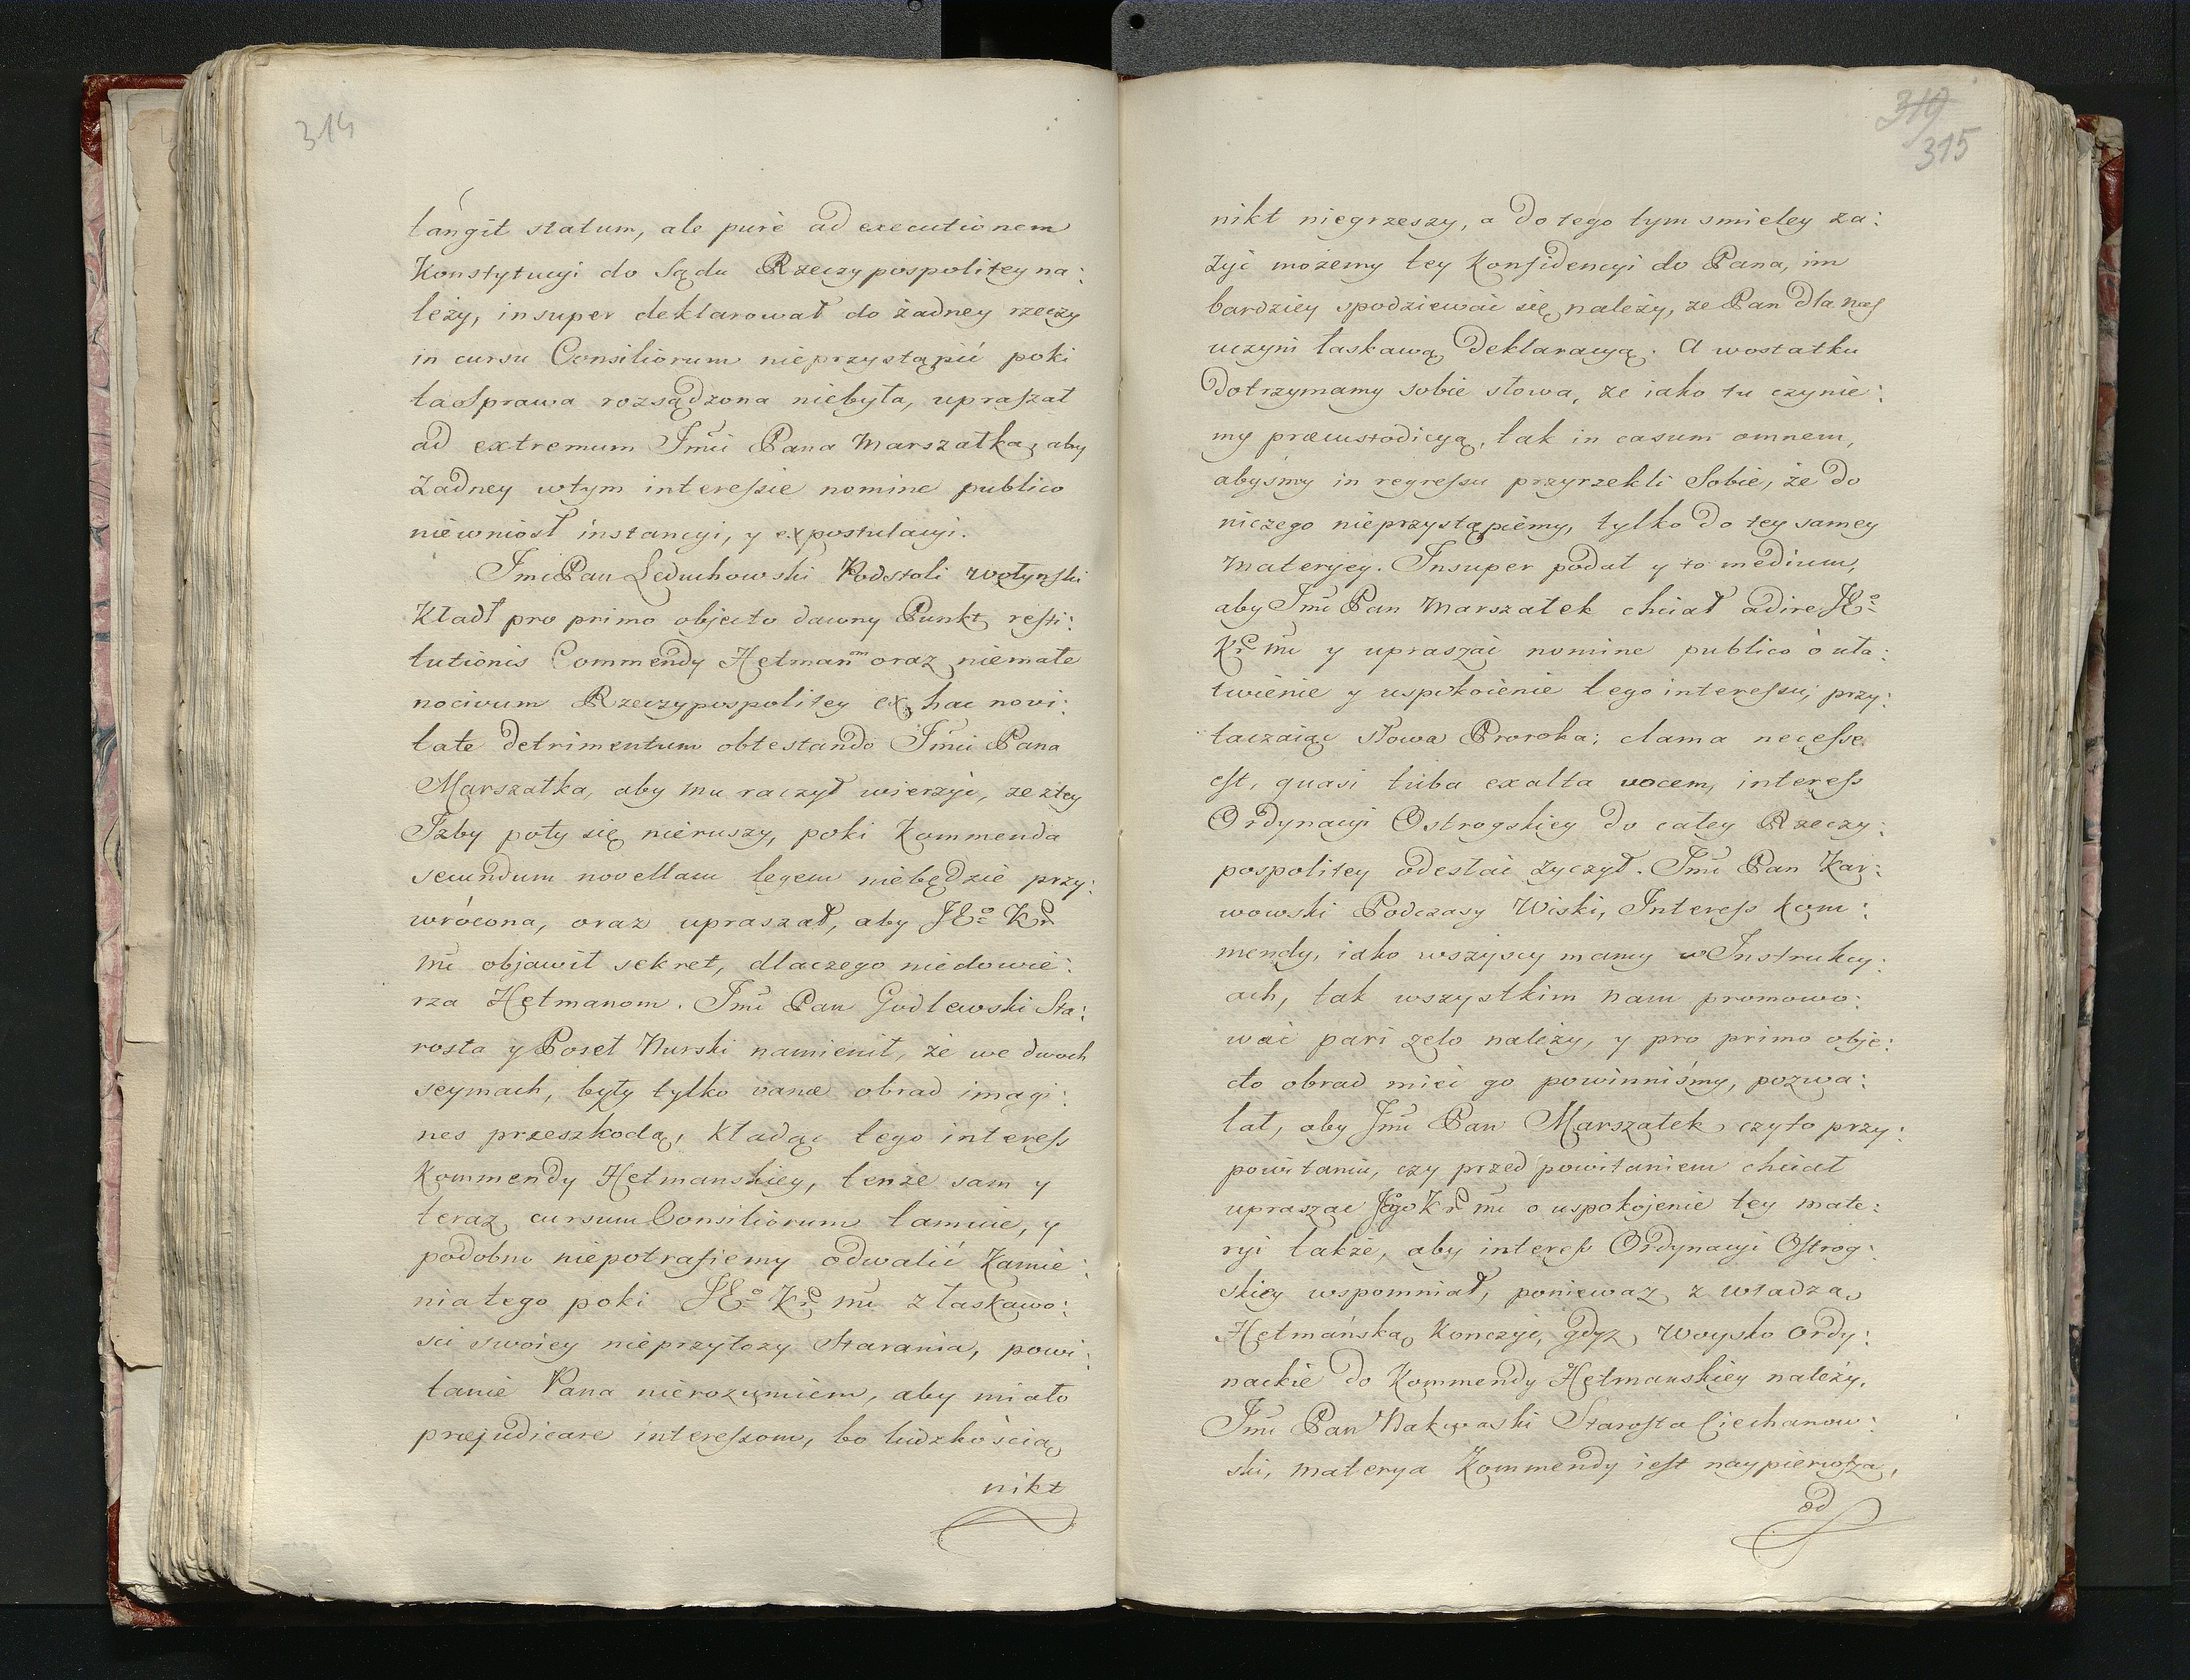 314
tangit statum, ale purè ad executionem
Konstytucyi do Sądu Rzeczypospolitey na:
leży, insuper deklarował do żadney rzeczy
in cursu Consiliorum nieprzystąpić poki
ta Sprawa rozsądzona niebyła, upraszał
ad extremum Jmći Pana Marszałka, aby
żadney wtym interessie nomine publico
niewniosł instancyi, y expostulacyi.
Jmć Pan Leduchowski Podstoli Wołynski
Kładł pro primo objecto dawny Punkt resti:
tutionis Commendy Hetmanom oraz niemałe
nocivum Rzeczypospolitey ex hac novi:
tate detrimentum obtestando Jmći Pana
Marszałka, aby mu raczył wierzyć, ze ztey
Izby poty się nieruszy, poki Kommenda
secundum novellam legem niebędzie przy:
wrócona, oraz upraszał, aby JEo Kr
mć objawił sekret, dlaczego niedowie:
rza Hetmanom. Jmć Pan Godlewski Sta:
rosta y Poseł Nurski namienił, że we dwoch
seymach, były tylko vanæ obrad imagi:
nes przeszkodą, Kładąc tego interess
Kommendy Hetmanskiey, tenze sam y
teraz cursum Consiliorum tamuie, y
podobno niepotrafiemy odwalić Kamie:
nia tego poki JEo Kr mć z łaskawo:
sci swoiey nieprzyłozy starania, powi:
tanie Pana nierozumiem, aby miało
præjudicare interessom, bo ludzkością
nikt
319
315
nikt niegrzeszy, a do tego tym smieley za:
żyć możemy tey Konfidencyi do Pana, im
bardziey spodziewać się należy, ze Pan dla nas
uczyni łaskawą deklaracyą. A wostatku
dotrzymamy sobie słowa, ze iako tu czynie:
my præcustodicyą, tak in casum omnem,
abyśmy in regressu przyrzekli Sobie, że do
niczego nieprzystąpiemy, tylko do tey samey
Materyey. Insuper podał y to medium,
aby Jmć Pan Marszałek chciał adire JEo
Kr mć y upraszać nomine publico ó uła:
twienie y uspokoienie tego interessu, przy:
taczaiąc słowa Proroka; clama necesse
est, quasi tuba exalta vocem, interess
Ordynacyi Ostrogskiey do całey Rzeczy:
pospolitey odesłać życzył. Jmć Pan Kar:
wowski Podczasy Wiski, Interess kom:
mendy, iako wszyscy mamy w Instrukcy:
ach, tak wszystkim nam promowo:
wać pari zelo należy, y pro primo obje:
cto obrad mieć go powinniśmy, pozwa:
lał, aby Jmć Pan Marszałek, czyto przy:
powitaniu, czy przed powitaniem chciał
upraszać Jego Kr mć o uspokojenie tey mate:
ryi także, aby interess Ordynacyi Ostrog:
skiey wspomniał, poniewaz z władzą
Hetmańską Konczyć, gdyz Woysko Ordy:
nackie do Kommendy Hetmanskiey należy.
Jmć Pan Nakwaski Starosta Ciechanow:
ski, materya Kommendy iest naypierwsza,
od